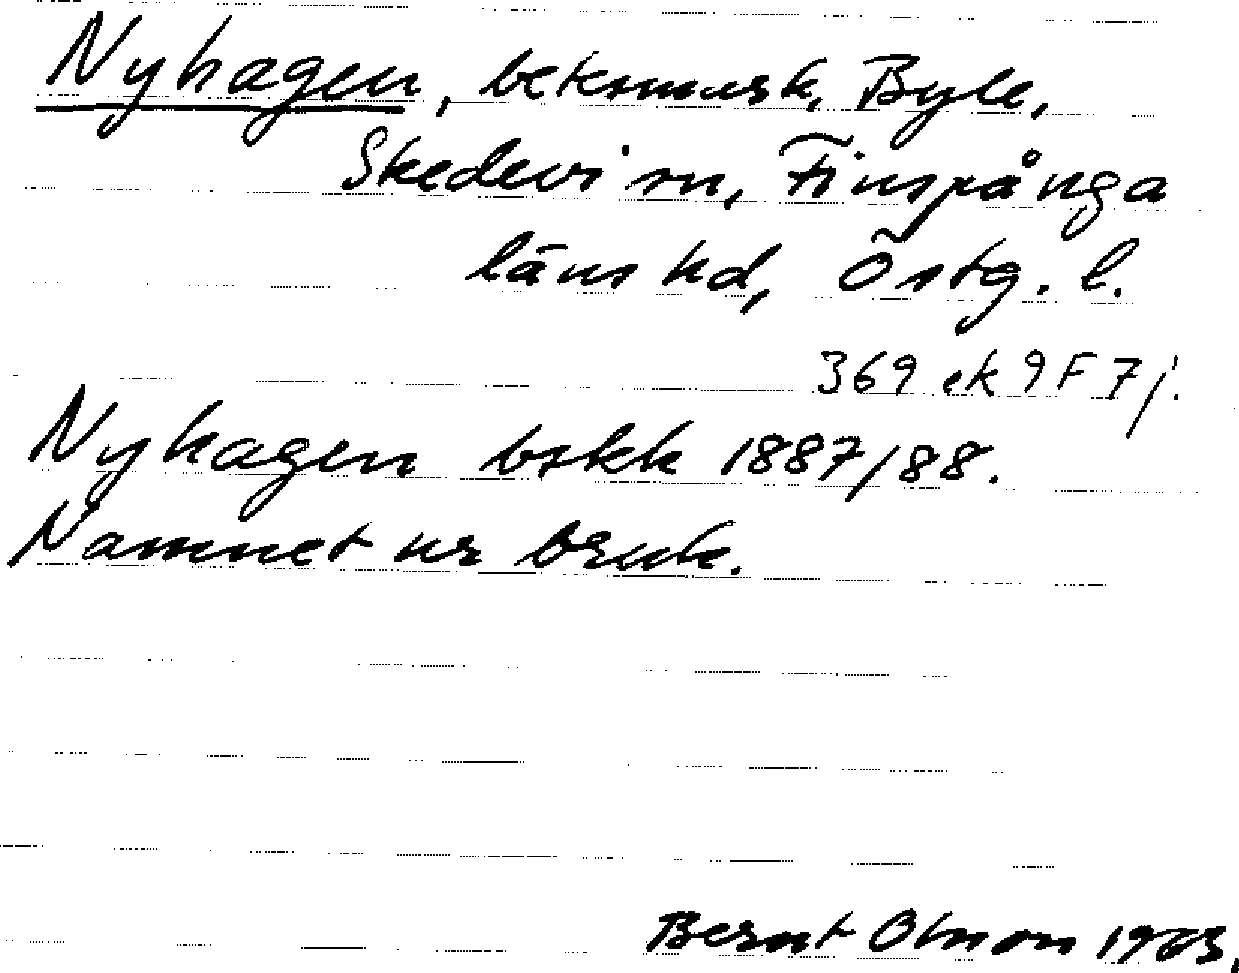 Nyhagen, betesmark, Byle,
Skedevi sn, Finspånga
läns hd, Östg. l.
369 ek 9F7j.
Nyhagen bskk 1887/88.
Namnet ur bruk.
Bernt Olsson